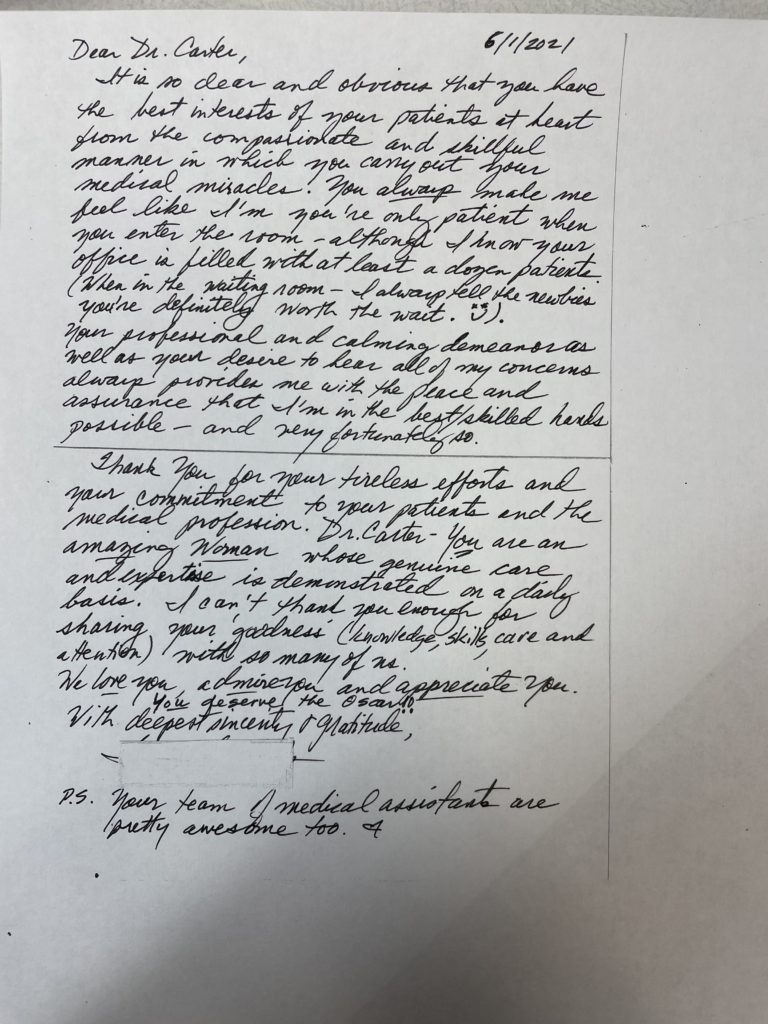 6/1/2021
Dear Dr. Carter,
It is so clear and obvious that you have
the best interests of your patients at heart
from the compassionate and skillful
manner in which you carry out your
medical miracles. You always make me
feel like I'm you're only patient when
you enter the room - although I know your
office is filled with at least a dozen patients
(When in the waiting room - I always tell the newbies
you're definitely worth the wait. ).
Your professional and calming demeanor as
well as your desire to hear all of my concerns
always provides me with the peace and
assurance that I'm in the best/skilled hands
possible - and very fortunately so.
Thank You for your tireless efforts and
your commitment to your patients and the
medical profession. Dr. Carter - You are an
amazing Woman whose genuine care
and expertise is demonstrated on a daily
basis. I can't thank you enough for
sharing your 'goodness' (knowledge, skills, care and
attention) with so many of us.
We love you, admire you and appreciate You.
You deserve the Oscar!!
With deepest sincerity & gratitude,
P.S. Your team of medical assistants are
pretty awesome too.